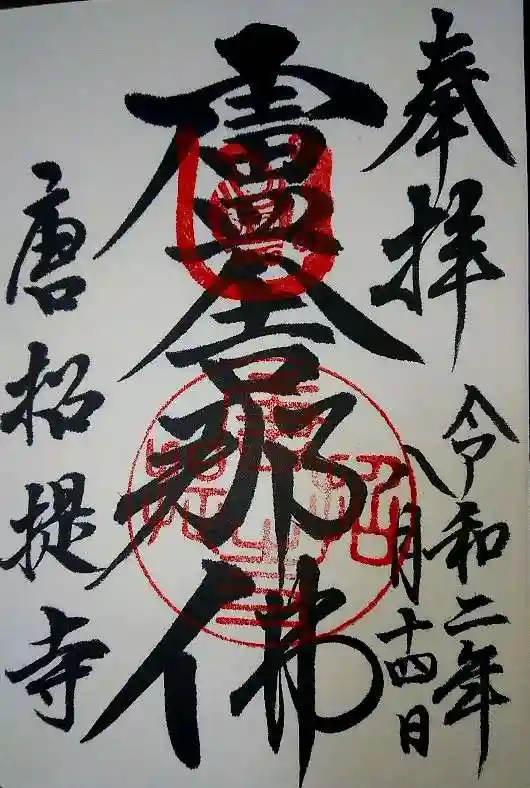 奉拝
令和二年
八月十四日
盧舎那佛
唐招提寺